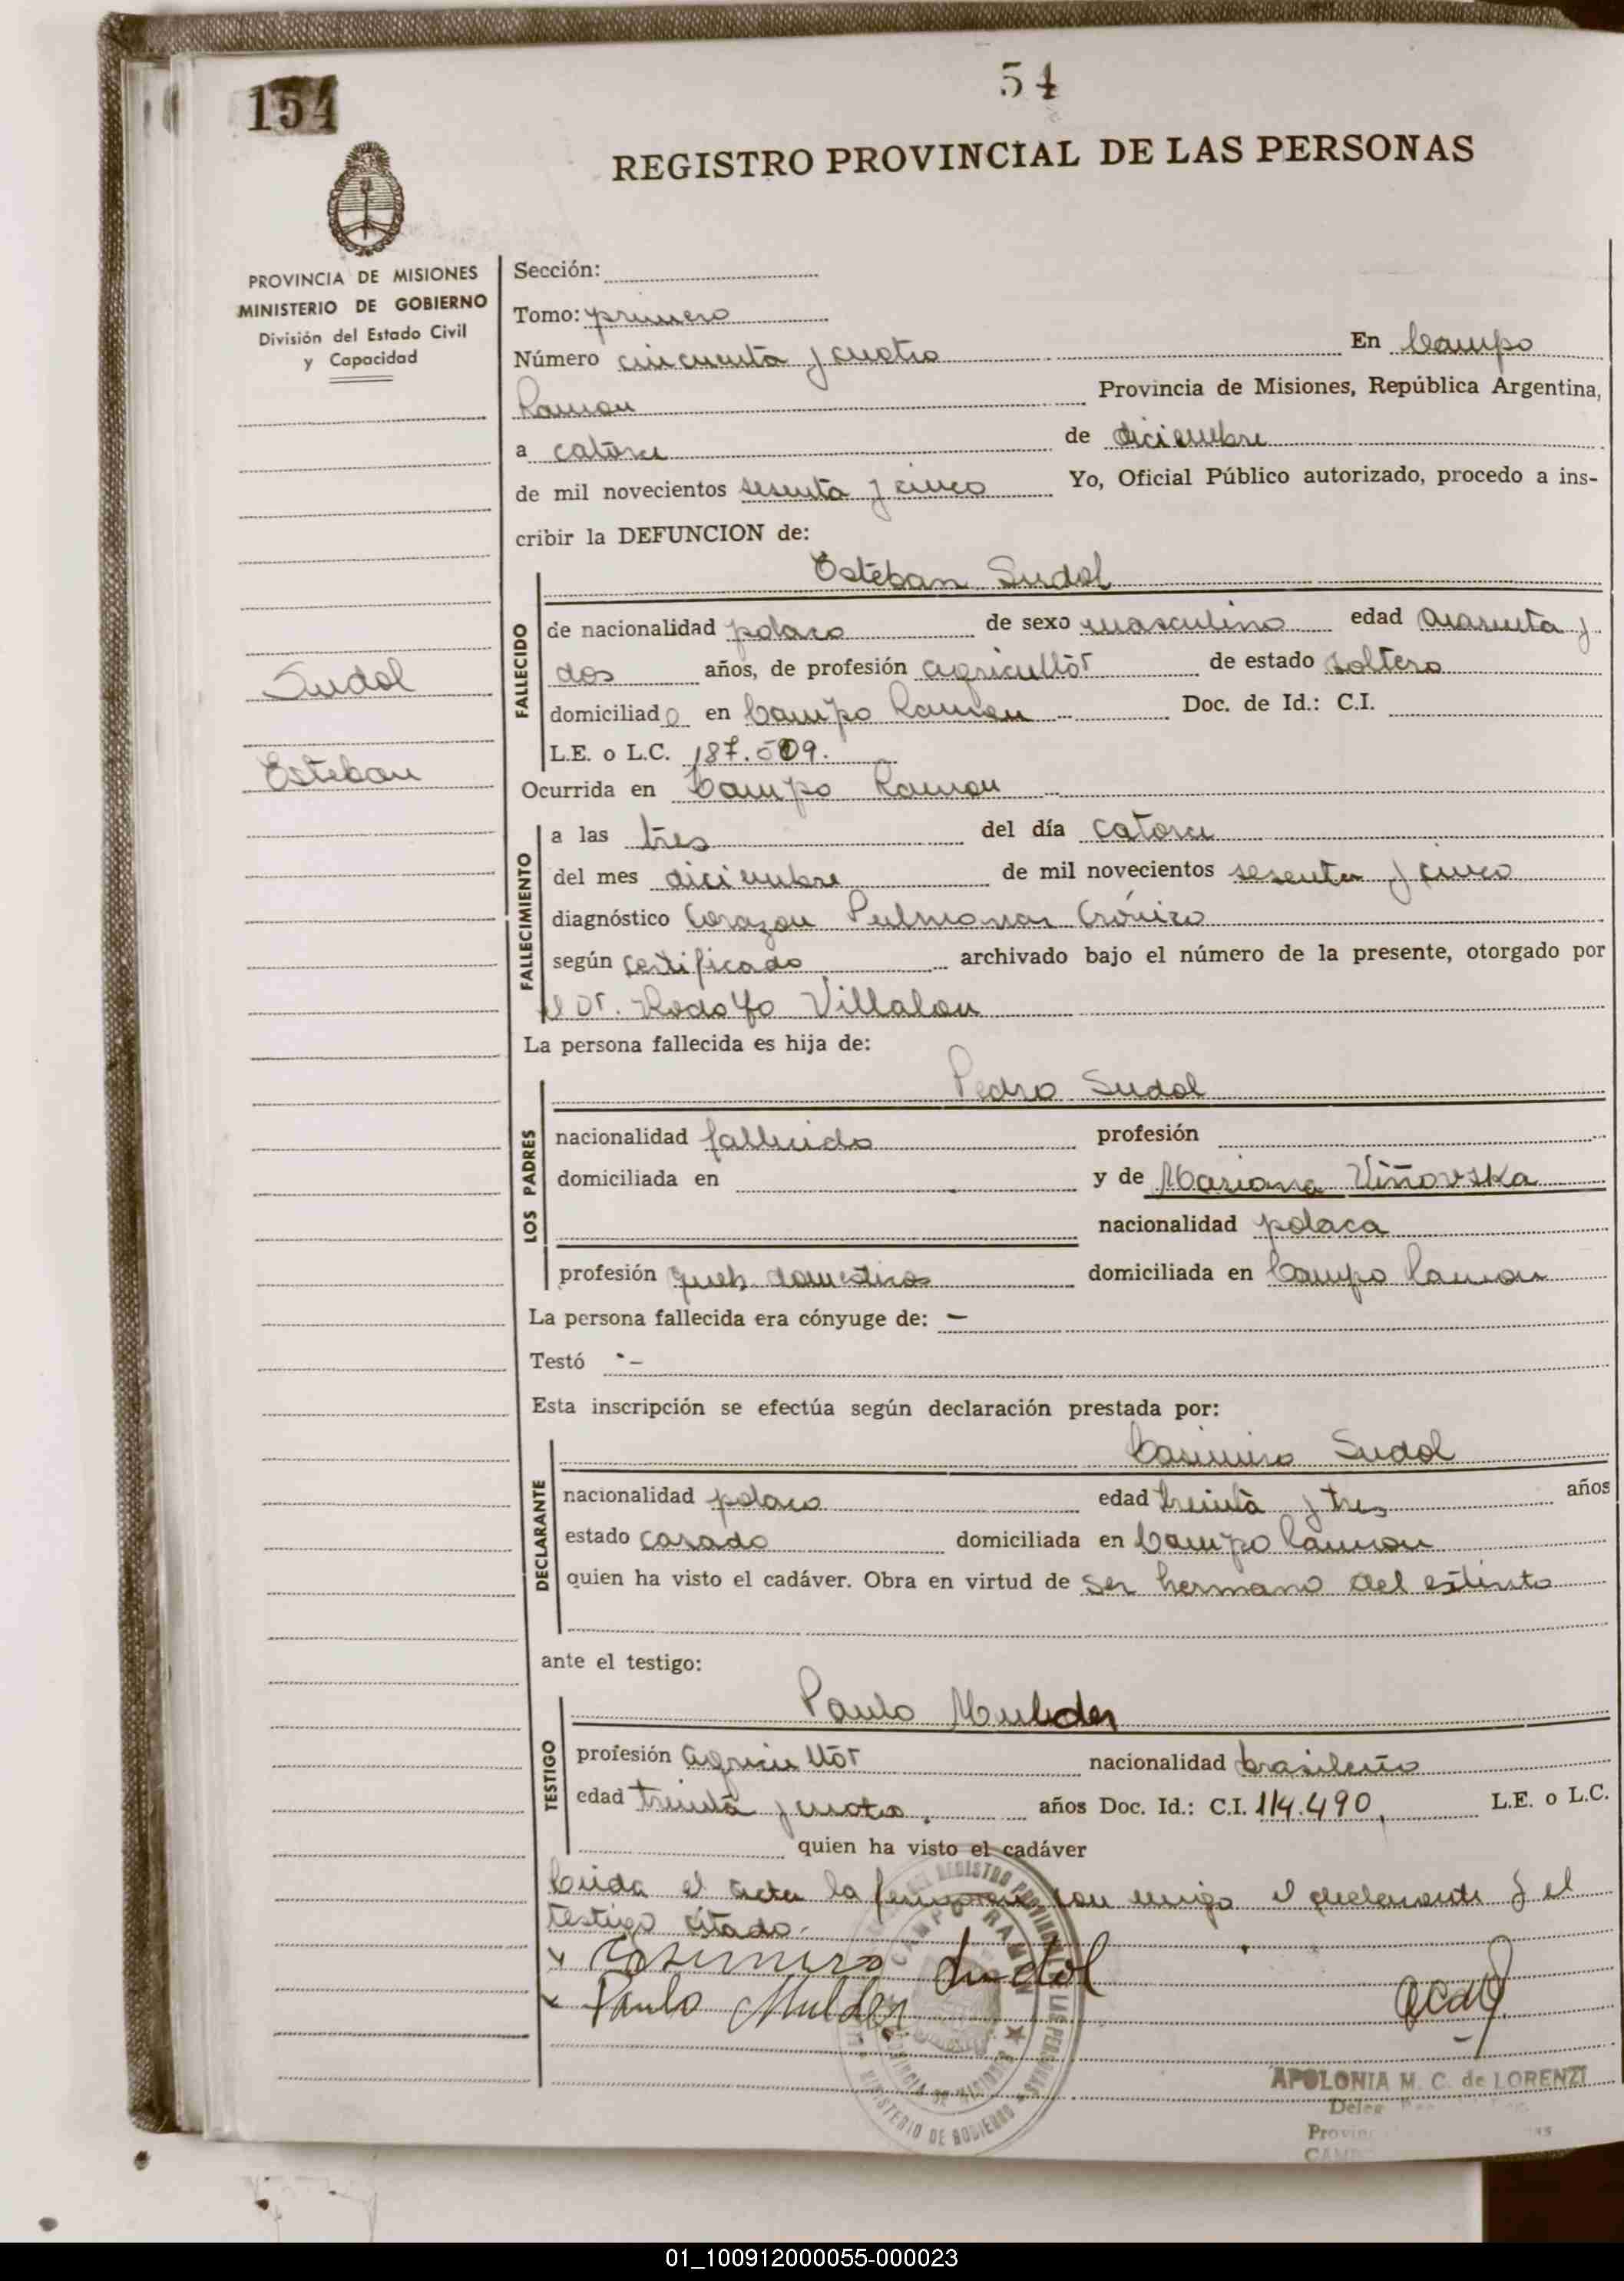 154
54
REGISTRO PROVINCIAL DE LAS PERSONAS
PROVINCIA DE MISIONES
MINISTERIO DE GOBIERNO
División del Estado Civil
y Capacidad
Sudol
Esteban
Sección:
Tomo: primero
Número cincuenta y cuatro En Campo
Ramon Provincia de Misiones, República Argentina,
a catorce de diciembre
de mil novecientos sesenta y cinco Yo, Oficial Público autorizado, procedo a ins-
cribir la DEFUNCION de:
Esteban Sudol
FALLECIDO
de nacionalidad polaco de sexo masculino edad cuarenta y
dos años, de profesión agricultor de estado soltero
domiciliado en Campo Ramon Doc. de Id.: C.I.
L.E. o L.C. 187.509.
Ocurrida en Campo Ramon
FALLECIMIENTO
a las tres del día catorce
del mes diciembre de mil novecientos sesenta y cinco
diagnóstico Corazon Pulmonar Crónico
según certificado archivado bajo el número de la presente, otorgado por
el Dr. Rodolfo Villalon
La persona fallecida es hija de:
Pedro Sudol
LOS PADRES
nacionalidad fallecido profesión
domiciliada en y de Mariana Viñovska
nacionalidad polaca
profesión queh. domesticos domiciliada en Campo Ramon
La persona fallecida era cónyuge de: —
Testó -
Esta inscripción se efectúa según declaración prestada por:
Casimiro Sudol
DECLARANTE
nacionalidad polaco edad treinta y tres años
estado casado domiciliada en Campo Ramon
quien ha visto el cadáver. Obra en virtud de ser hermano del extinto
ante el testigo:
Paulo Mulder
TESTIGO
profesión agricultor nacionalidad brasileño
edad treinta y cuatro, años Doc. Id.: C.I. 114.490, L.E. o L.C.
quien ha visto el cadáver
Leida el acta la firmaron con migo el declarante y el
testigo citado.
x Casimiro Sudol
x Paulo Mulder
REGISTRO PROVINCIAL DE LAS PERSONAS
CAMPO RAMON
PROVINCIA DE MISIONES
MINISTERIO DE GOBIERNO
APOLONIA M. C. de LORENZI
01_100912000055-000023